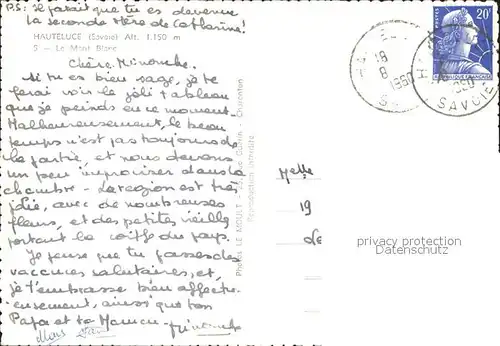 P.S: Il paraît que tu es devenue
la seconde Mère de Catherine!
HAUTELUCE (Savoie) Alt. 1.150 m
5 - Le Mont Blanc
Chère Minouche.
Si tu es bien sage, je te
ferai voir le joli tableau
que je peinds en ce moment.
Malheureusement, le beau
temps n'est pas toujours de
la partie, et nous devons
un peu improviser dans la
chambre - La région est très
jolie, avec de nombreuses
fleurs, et des petites vieilles
portant la coiffe du pays.
Je pense que tu passes des
vacances salutaires, et,
je t'embrasse bien affectu-
eusement, ainsi que ton
Papa et ta Maman -
Photos LE MOULT -
Reproduction interdite
18
8
1960
SAVOIE
20F
RÉPUBLIQUE FRANÇAISE
Melle
19
de
privacy protection
Datenschutz